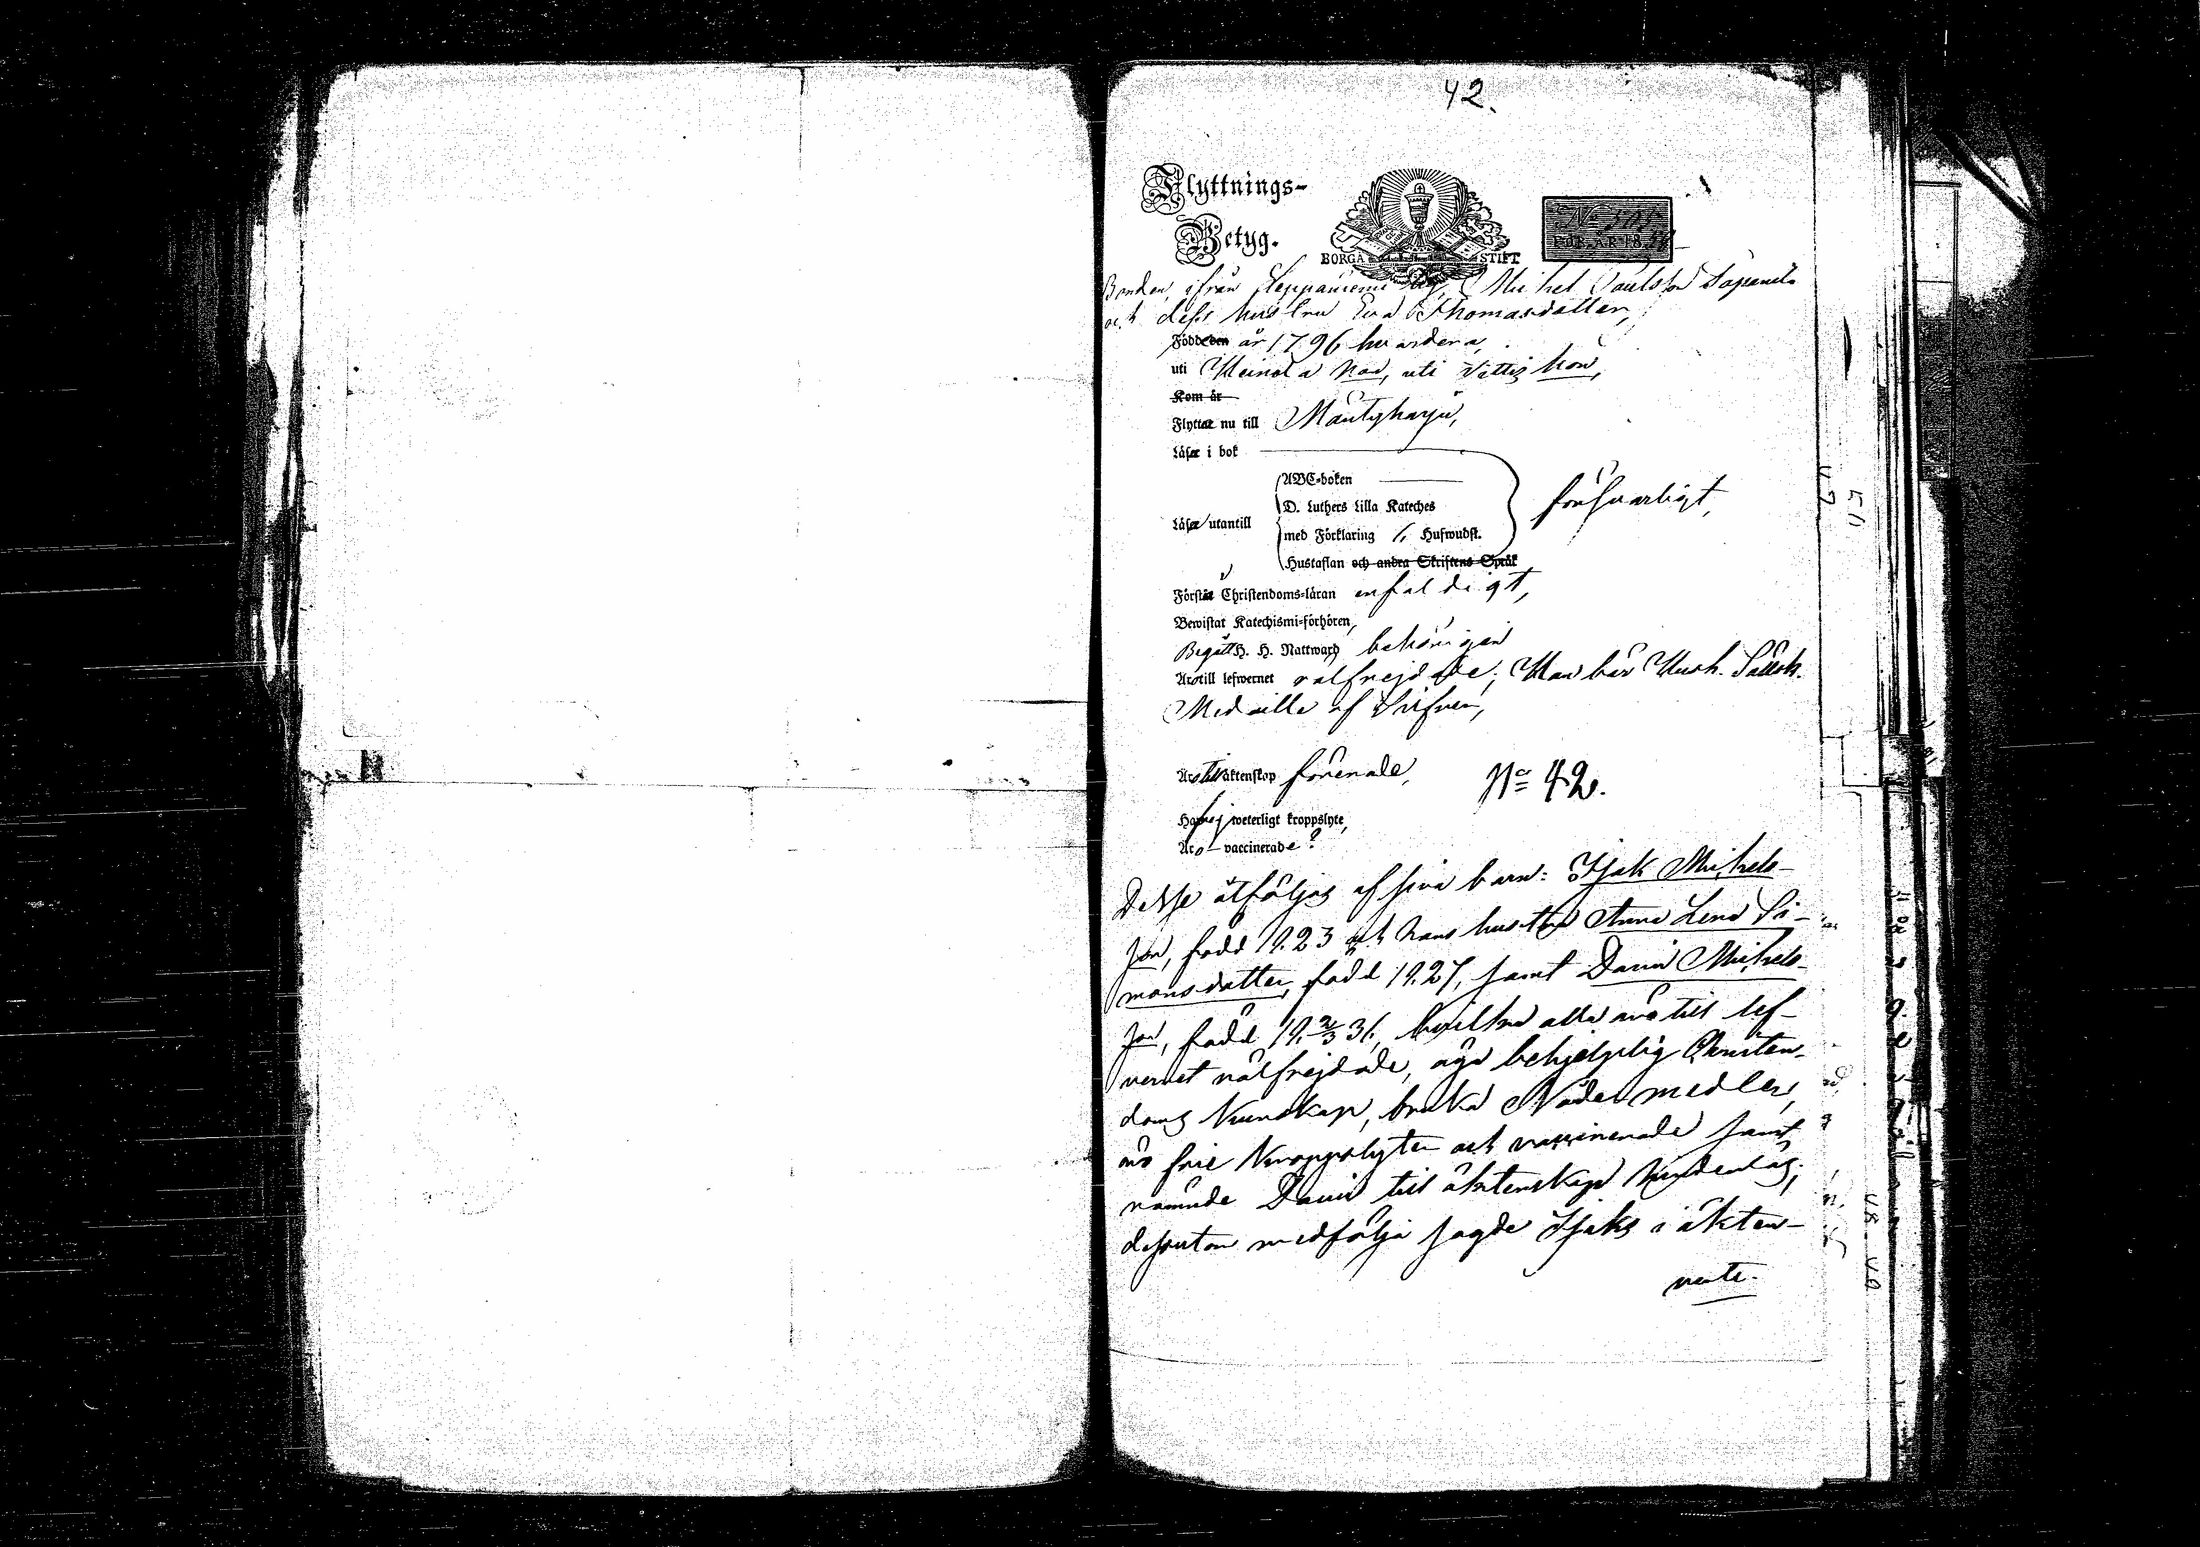 42.
Flyttnings-
Betyg.
BORGÅ STIFT
FÖR ÅR 18
Bonden, ifrån Leppäniemi by, Michel Paulsson
och dess hustru Eva Thomasdotter,
Född den år 1796 hvardera,
uti Heinola han, uti Sittis hon,
Kom år
Flyttar nu till Mäntyharju,
Läser i bok
ABC-boken
D. Luthers Lilla Kateches
Läser utantill
med Förklaring Hufwudst.
Hustaflan och andra Skriftens Språk
försvarligt,
Förstår Christendoms-läran enfaldigt,
Bewistat Katechismi-förhören,
Begått H. H. Nattward behörigen
Äro till lefwernet välfrejdade; Man bär Hush. Sällsk.
Medaille af Silfver,
Äro till äktenskap förenade,
No 42.
Hafva ej weterligt kroppslyte,
Äro - vaccinerade?
Desse åtföljas af sina barn: Isak Michels-
son, född 18.23 och hans hustru Anna Lena Si-
monsdotter, född 18.27, samt David Michels-
son, född 18 2/3 31, hvilka alla äro till lef-
vernet välfrejdade, äga behjelplig Christen-
doms kunskap, bruka Nådemedlen,
äro frie kroppslyten och vaccinerade samt
nämnde David till äktenskap hinderlös;
dessutom medfölja sagde Isaks i äkten-
verte.